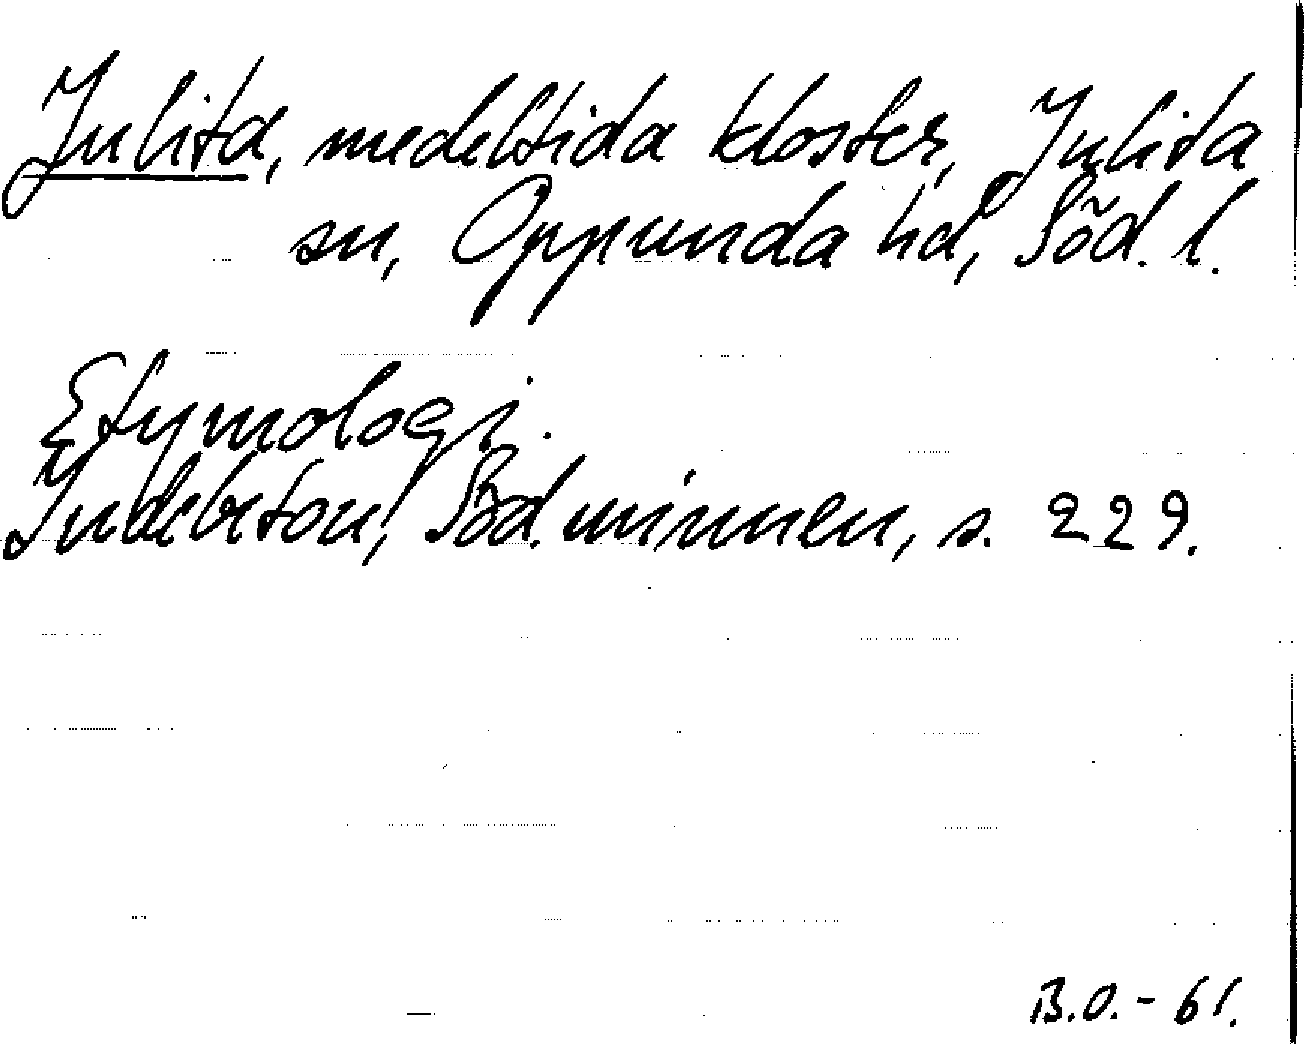 Julita, medeltida kloster, Julita
sn, Oppunda hd, Söd. l.
Etymologi.
Indebetou, Söd. minnen, s. 229.
B.O. - 61.